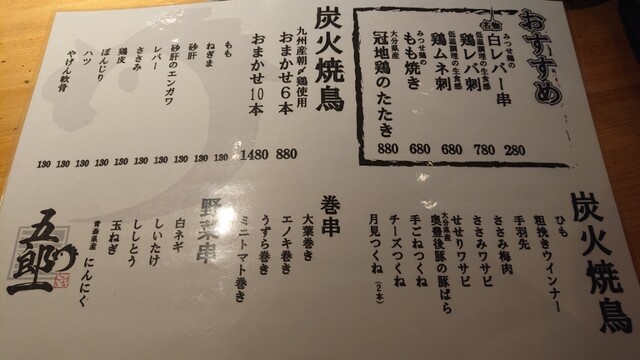 おすすめ
名物
みつせ鶏の
白レバー串
280
低温調理の生食感
鶏レバ刺
780
低温調理の生食感
鶏ムネ刺
680
みつせ鶏の
もも焼き
680
大分県産
冠地鶏のたたき
880
炭火焼鳥
九州産朝〆鶏使用
おまかせ6本
880
おまかせ10本
1480
もも
130
ねぎま
130
砂肝
130
砂肝のエンガワ
130
レバー
130
ささみ
130
鶏皮
130
ぼんじり
130
ハツ
130
やげん軟骨
130
炭火焼鳥
ひも
粗挽きウインナー
手羽先
ささみ梅肉
ささみワサビ
せせりワサビ
大分県産
奥豊後豚の豚ばら
手ごねつくね
チーズつくね
月見つくね(2本)
巻串
大葉巻き
エノキ巻き
うずら巻き
ミニトマト巻き
野菜串
白ネギ
しいたけ
ししとう
玉ねぎ
青森県産
にんにく
五郎